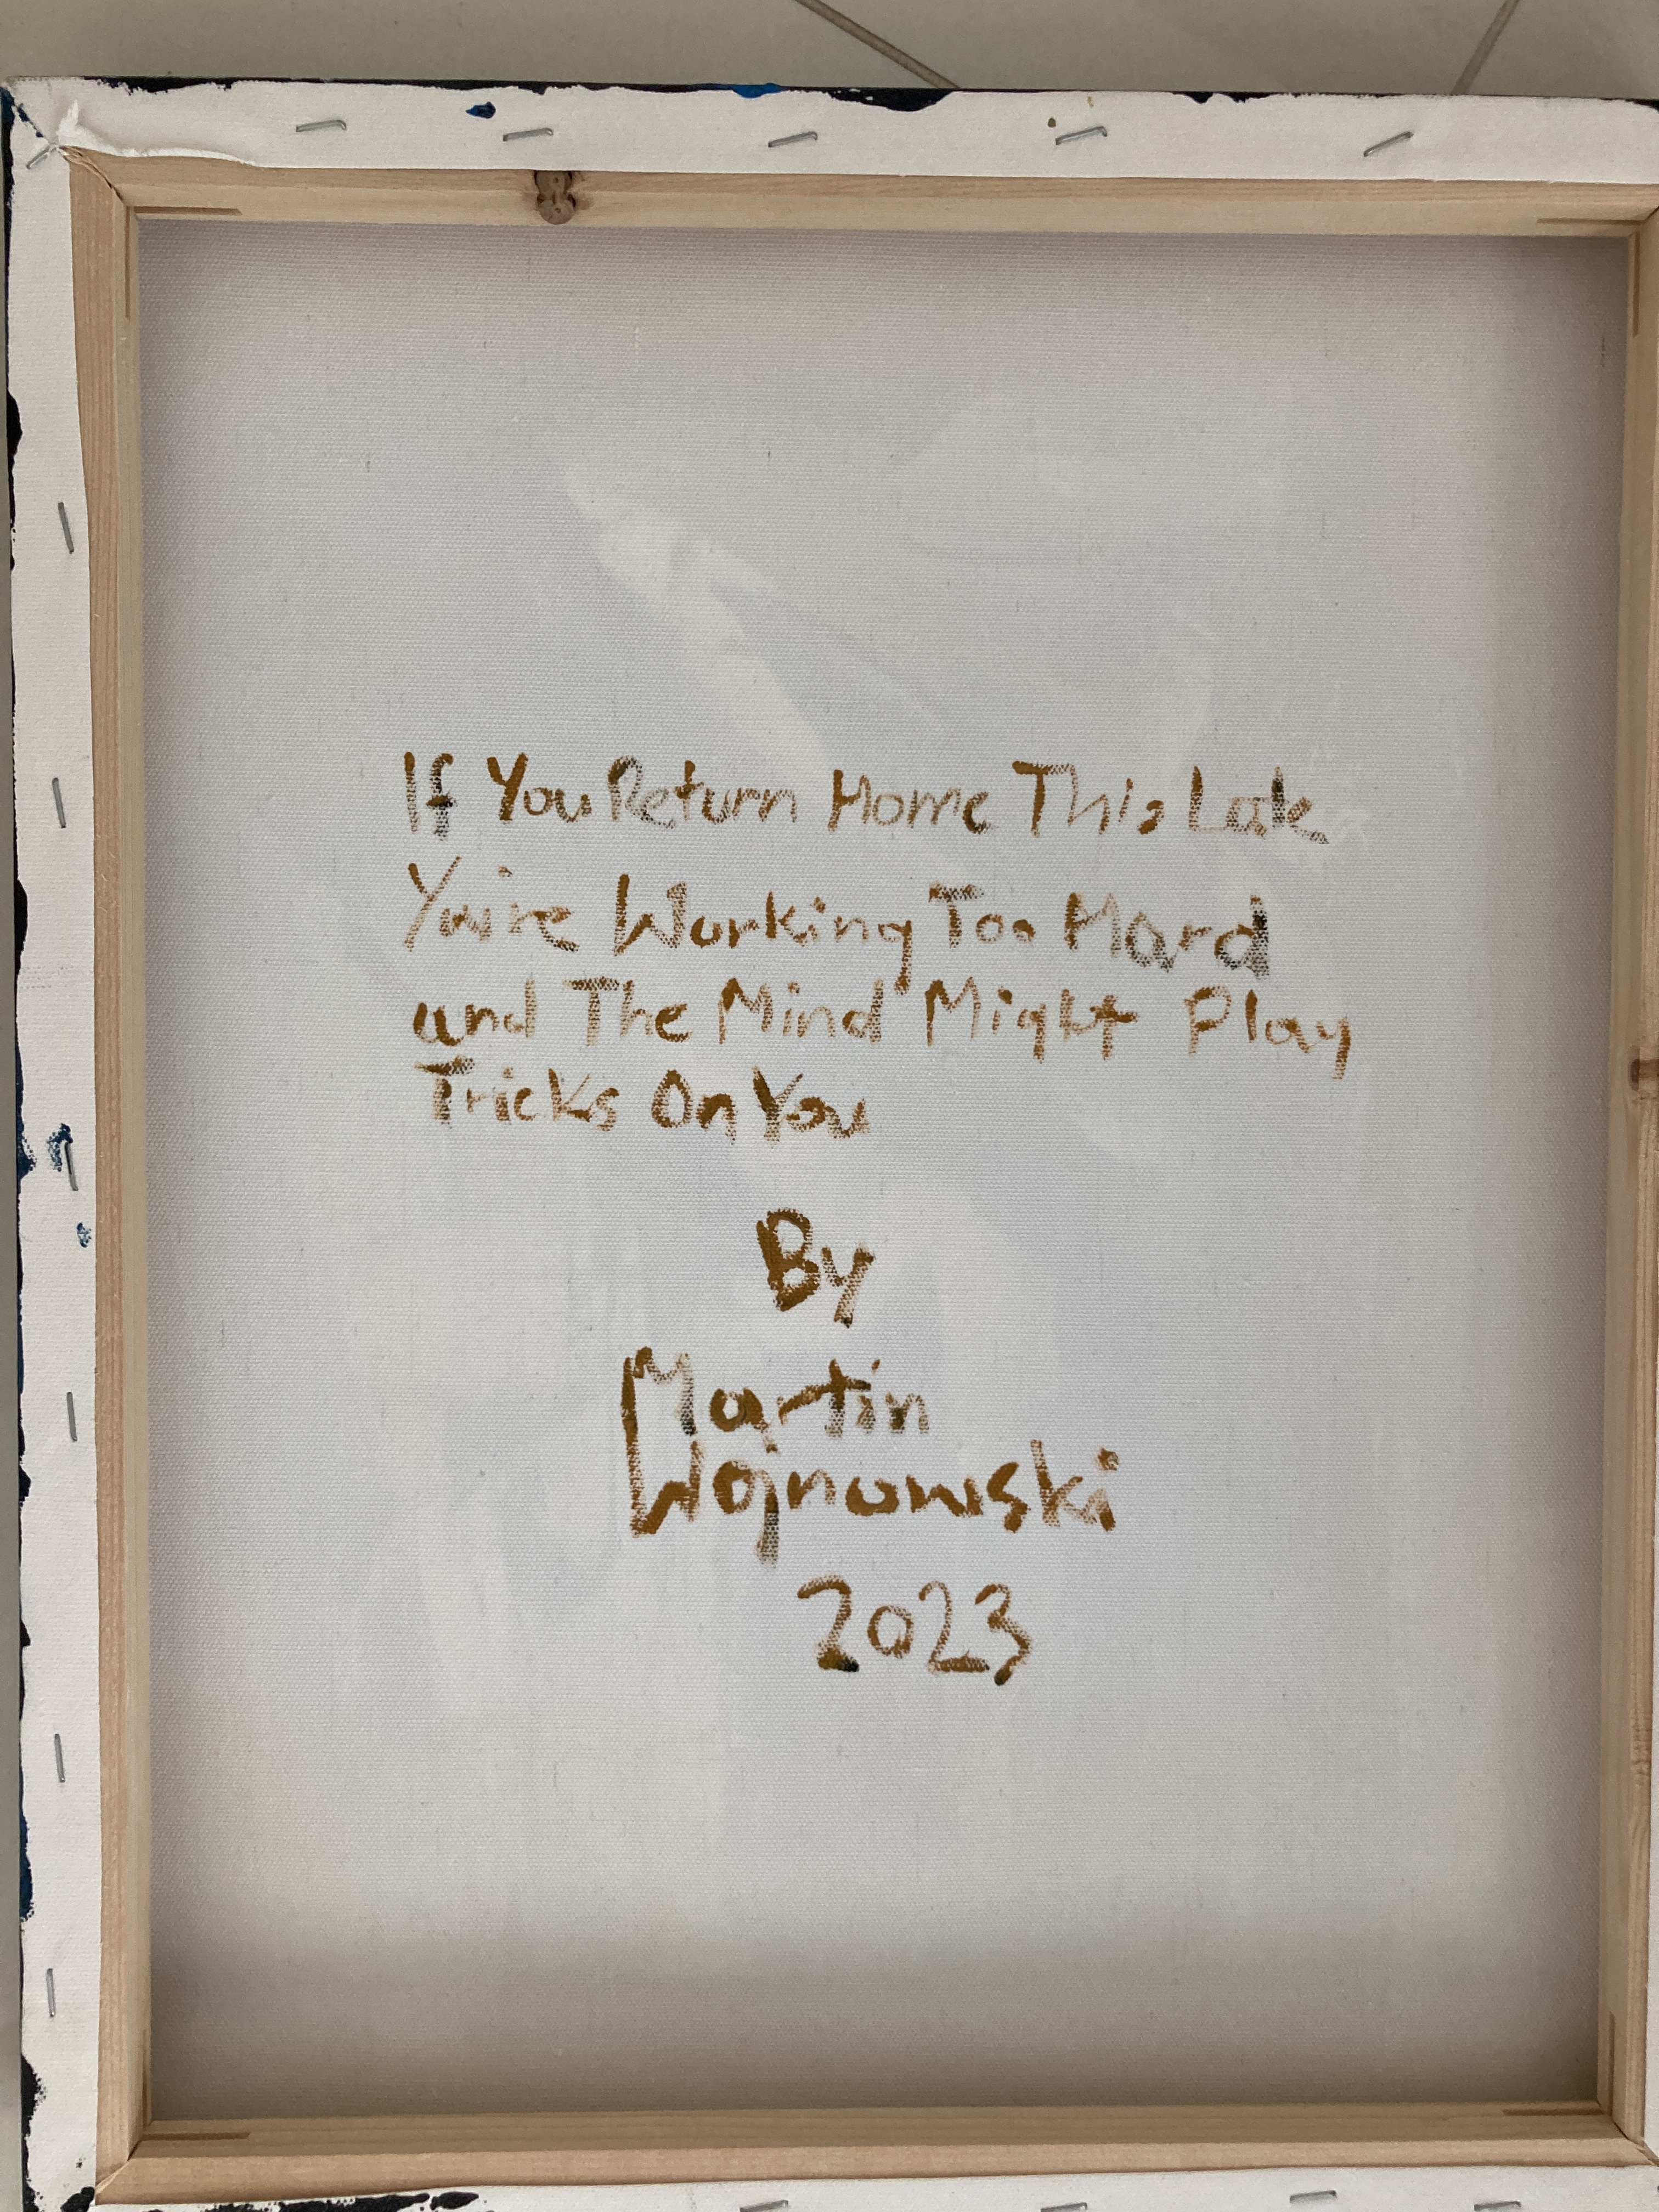 If You Return Home This Late
You're Working Too Hard
and The Mind Might Play
Tricks On You
By
Martin
Wojnowski
2023